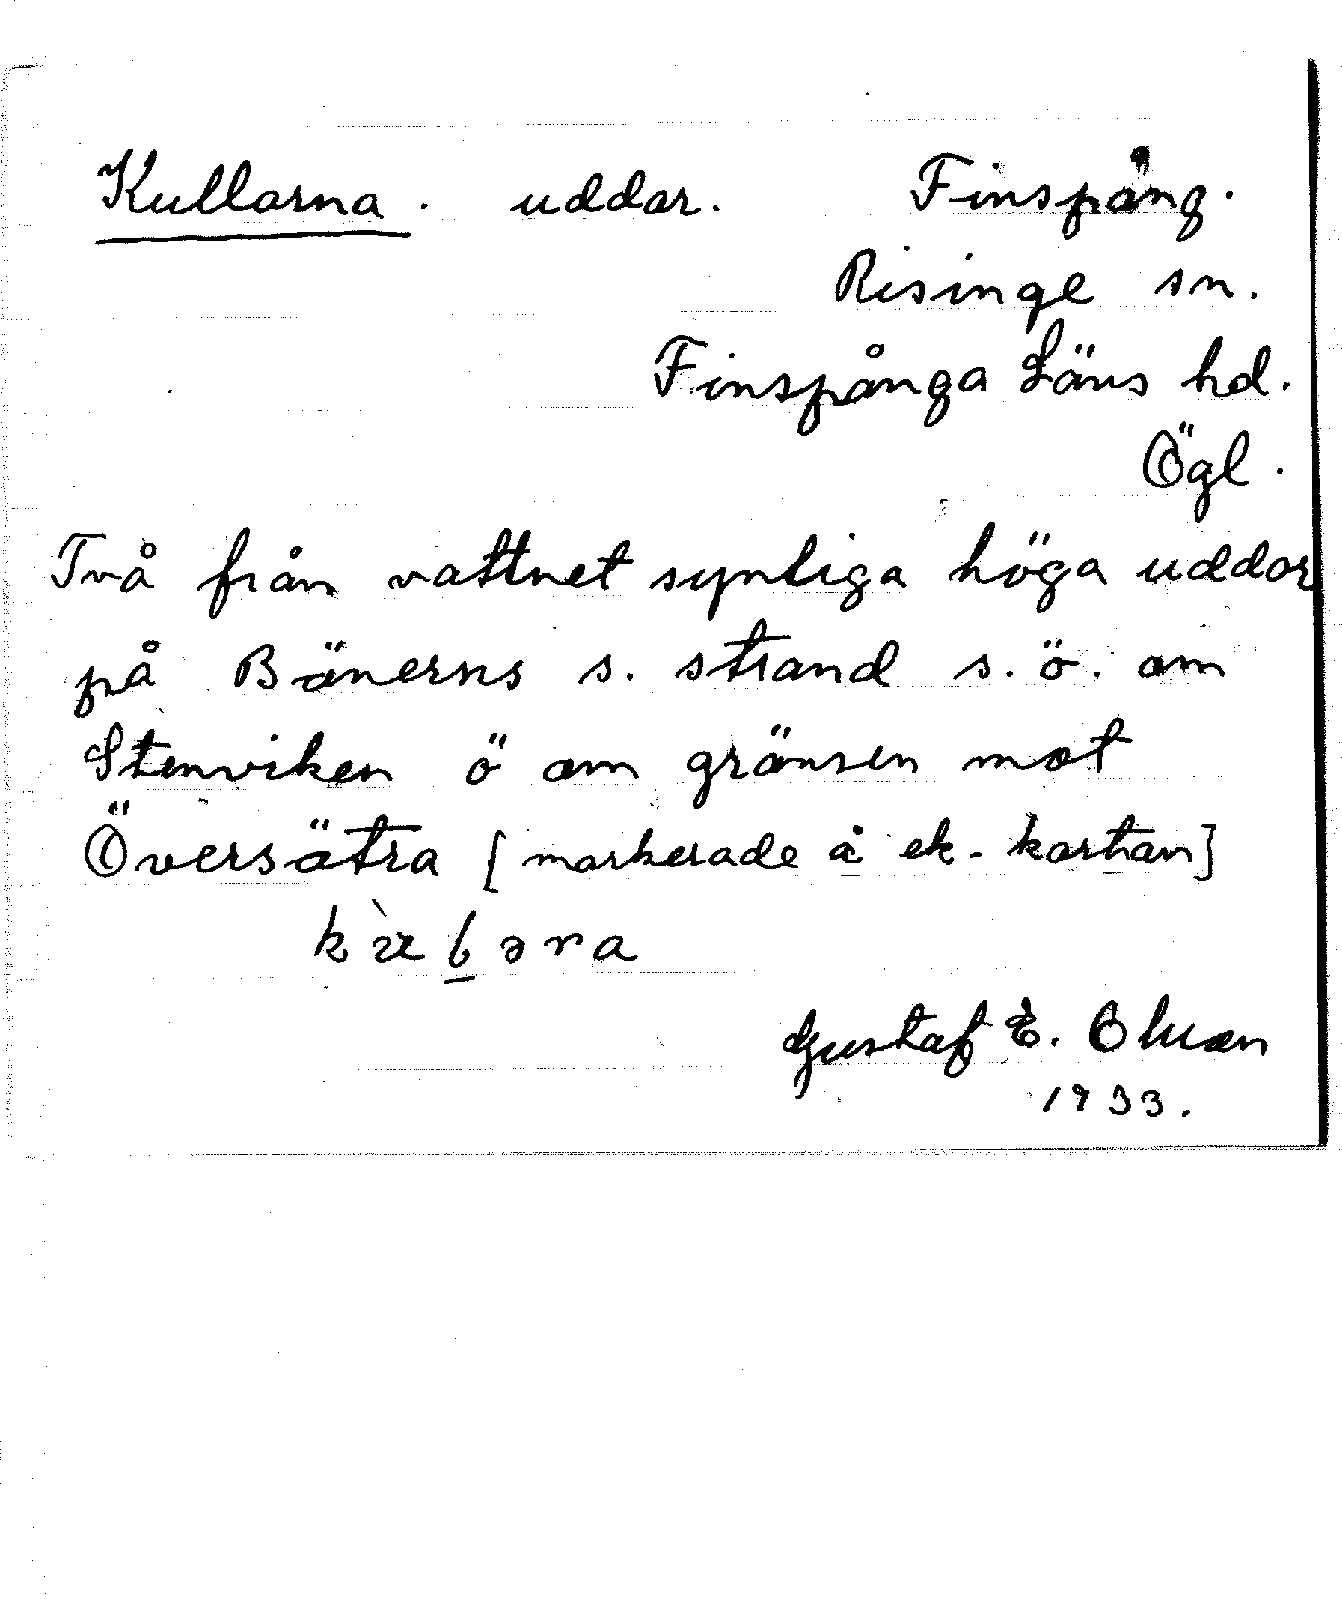 Kullarna. uddar. Finspång.
Risinge sn.
Finspånga Läns hd.
Ögl.
Två från vattnet synliga höga uddar
på Bänerns s. strand s. ö. om
Stenviken ö om gränsen mot
Översätra [markerade å ek. kartan]
Gustaf E.
1933.